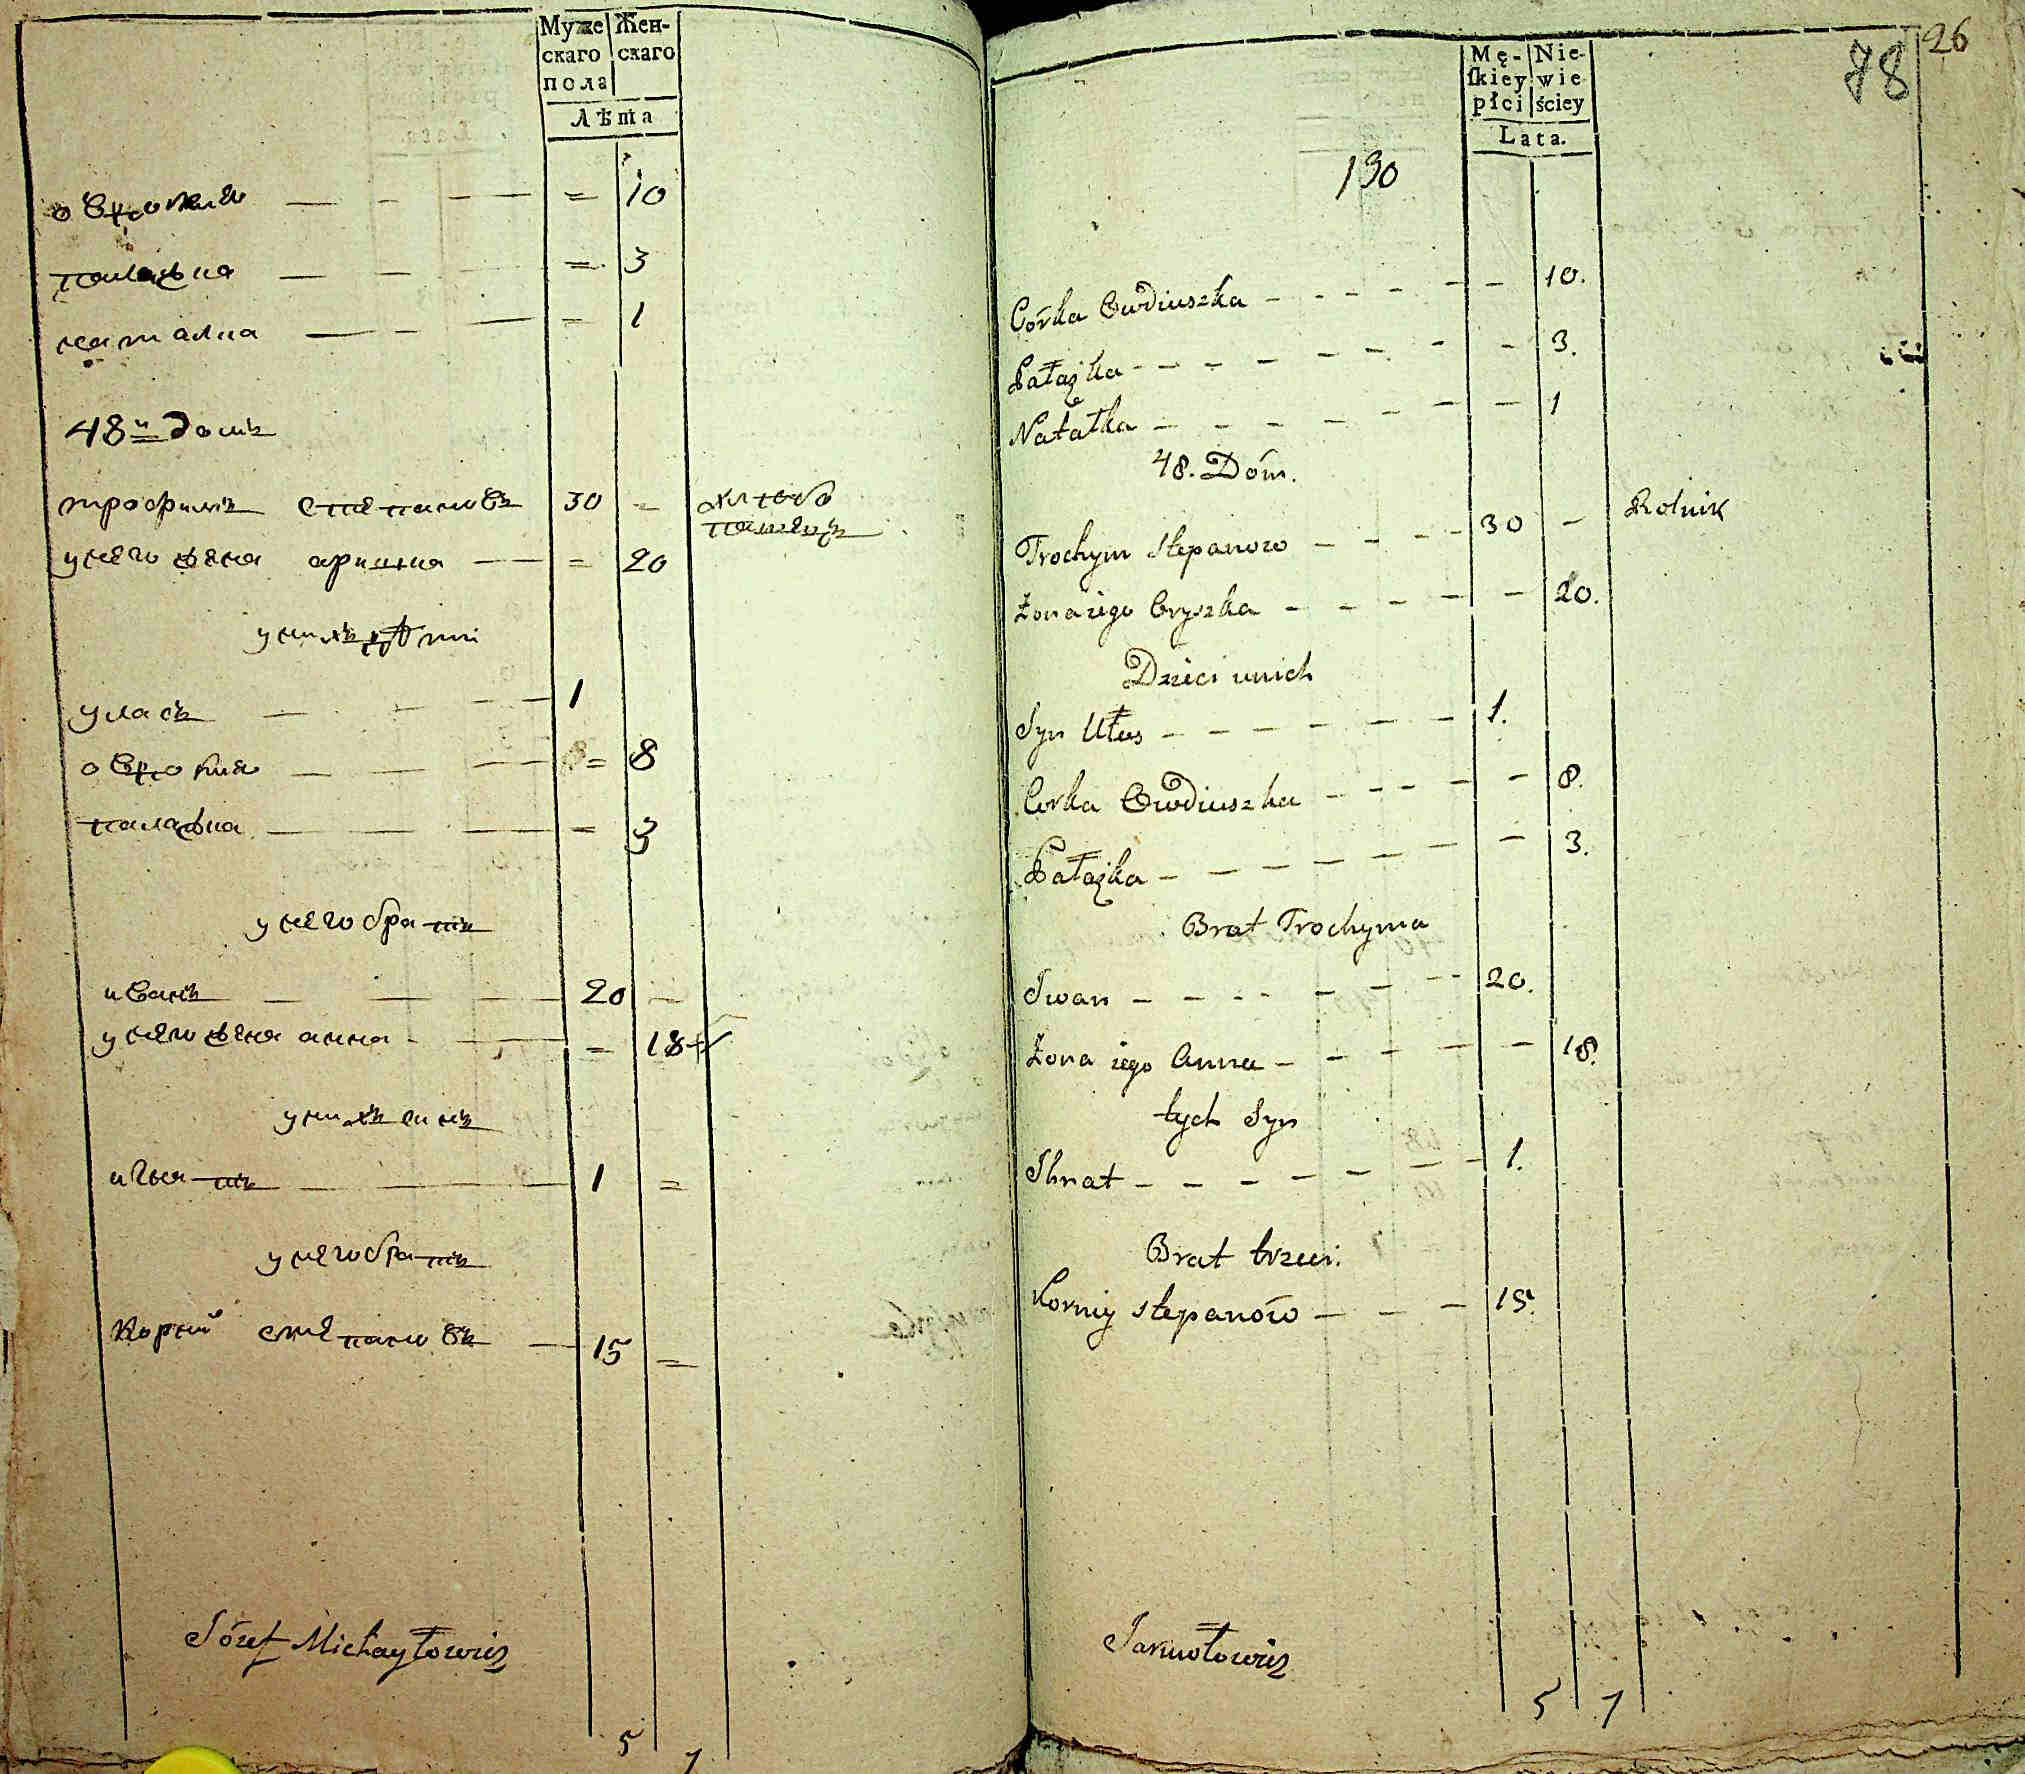 Муже Жен-
скаго скаго
пола
Лѣта
овдотия — — — = 10
палажка — — — = 3
наталка — — — = 1
48й домъ
трофимъ степановъ 30 = хлебо
пашецъ
унего жена аришка — = 20
унихъ дѣти
уласъ — — — 1
овдотия — — — = 8
палажка — — — = 3
унего братъ
иванъ — — — 20 —
унего жена анна — — = 18
унихъ синъ
игнатъ — — — 1 =
унего братъ
Корний степановъ — 15 =
Józef Michayłowicz
5 7
26
78
Mę- Nie-
ſkiey wie
płci ściey
Lata.
130
Córka Owdiuszka — — — 10.
Pałażka — — — 3.
Natałka — — — 1
48. Dóm.
Trochym Stepanow — — — 30 — Rolnik
Żona iego Oryszka — — — 20.
Dzieci unich
Syn Ułas — — — 1.
Corka Owdiuszka — — — 8.
Pałażka — — — 3.
Brat Trochyma
Iwan — — — 20.
Żona iego Anna — — — 18.
tych Syn
Ihnat — — — 1.
Brat trzeci.
Korniy Stepanów — — — 15.
Jarmołowicz
5 7